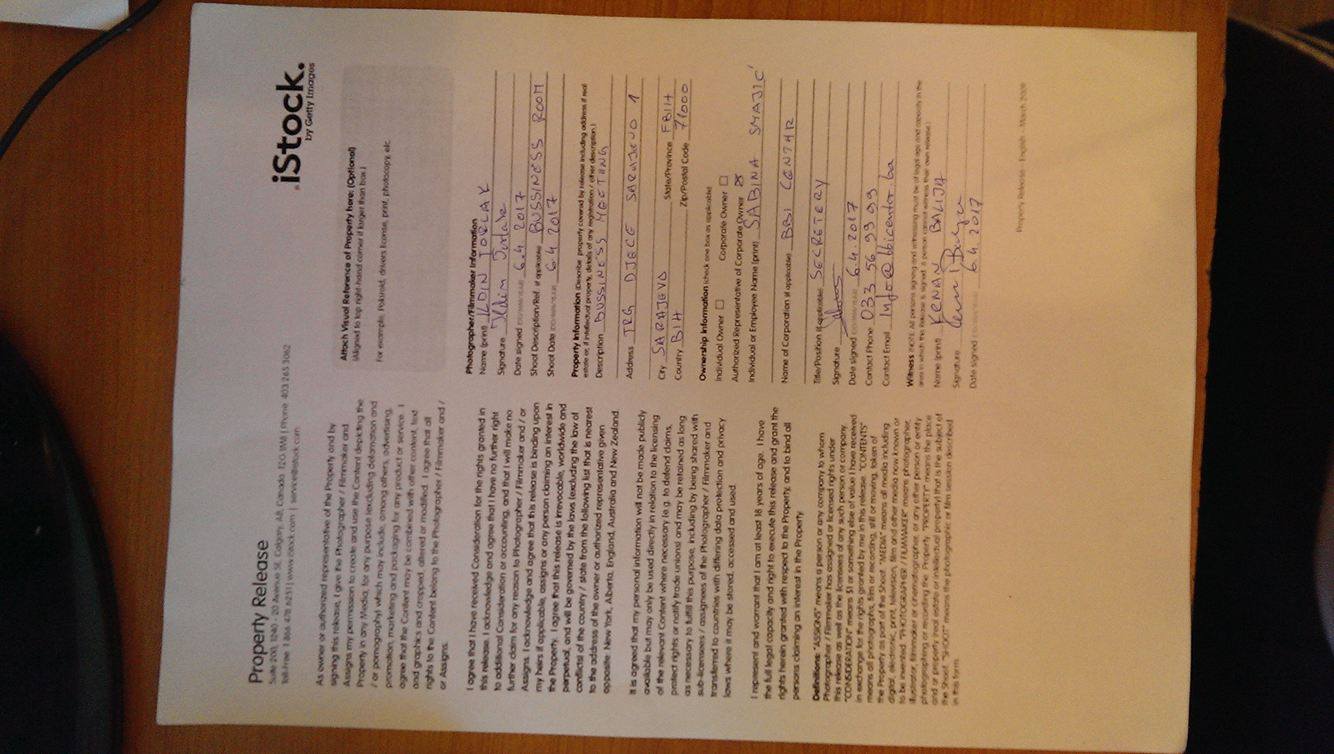 Property Release
Suite 200, 1240 - 20 Avenue SE, Calgary, AB, Canada, T2G 1M8 | Phone: 403 265 3062
toll-free: 1 866 478 6251 | www.istock.com | service@istock.com
iStock.
by Getty Images
As owner or authorized representative of the Property and by
signing this release, I give the Photographer / Filmmaker and
Assigns my permission to create and use the Content depicting the
Property in any Media, for any purpose (excluding defamation and
/ or pornography) which may include, among others, advertising,
promotion, marketing and packaging for any product or service. I
agree that the Content may be combined with other content, text
and graphics and cropped, altered or modified. I agree that all
rights to the Content belong to the Photographer / Filmmaker and /
or Assigns.
I agree that I have received Consideration for the rights granted in
this release. I acknowledge and agree that I have no further right
to additional Consideration or accounting, and that I will make no
further claim for any reason to Photographer / Filmmaker and / or
Assigns. I acknowledge and agree that this release is binding upon
my heirs if applicable, assigns or any person claiming an interest in
the Property. I agree that this release is irrevocable, worldwide and
perpetual, and will be governed by the laws (excluding the law of
conflicts) of the country / state from the following list that is nearest
to the address of the owner or authorized representative given
opposite: New York, Alberta, England, Australia and New Zealand.
It is agreed that my personal information will not be made publicly
available but may only be used directly in relation to the licensing
of the relevant Content where necessary (e.g. to defend claims,
protect rights or notify trade unions) and may be retained as long
as necessary to fulfill this purpose, including by being shared with
sub-licensees / assignees of the Photographer / Filmmaker and
transferred to countries with differing data protection and privacy
laws where it may be stored, accessed and used.
I represent and warrant that I am at least 18 years of age. I have
the full legal capacity and right to execute this release and grant the
rights herein granted with respect to the Property, and to bind all
persons claiming an interest in the Property.
Definitions: "ASSIGNS" means a person or any company to whom
Photographer / Filmmaker has assigned or licensed rights under
this release as well as the licensees of any such person or company.
"CONSIDERATION" means $1 or something else of value I have received
in exchange for the rights granted by me in this release. "CONTENTS"
means all photographs, film or recording, still or moving, taken of
the Property as part of the Shoot. "MEDIA" means all media including
digital, electronic, print, television, film and other media now known or
to be invented. "PHOTOGRAPHER / FILMMAKER" means photographer,
illustrator, filmmaker or cinematographer, or any other person or entity
photographing or recording the Property. "PROPERTY" means the place
and/or property (real estate or intellectual property) that is the subject of
the Shoot. "SHOOT" means the photographic or film session described
in this form.
Attach Visual Reference of Property here: (Optional)
(Aligned to top right-hand corner if larger than box.)
For example, Polaroid, drivers license, print, photocopy, etc.
Photographer/Filmmaker Information
Name (print) ILDIN TORLAK
Signature
Date signed 6.4 2017
Shoot Description/Ref. (if applicable) BUSSINESS ROOM
Shoot Date 6.4 2017
Property Information (Describe property covered by release including address if real
estate or, if intellectual property, details of any registration / other description.)
Description BUSSINESS MEETING
Address TRG DJECE SARAJEVO 1
City SARAJEVO State/Province FBIH
Country BIH Zip/Postal Code 71000
Ownership Information (check one box as applicable)
Individual Owner ☐ Corporate Owner ☐
Authorized Representative of Corporate Owner ☒
Individual or Employee Name (print) SABINA SMAJIĆ
Name of Corporation (if applicable) BBI CENTAR
Title/Position (if applicable) SECRETERY
Signature
Date signed 6.4.2017
Contact Phone 033 56 99 99
Contact Email Info@bbicentar.ba
Witness (NOTE: All persons signing and witnessing must be of legal age and capacity in the
area in which this Release is signed. A person cannot witness their own release.)
Name (print) KENAN BALIJA
Signature
Date signed 6.4.2017
Property Release - English - March 2009